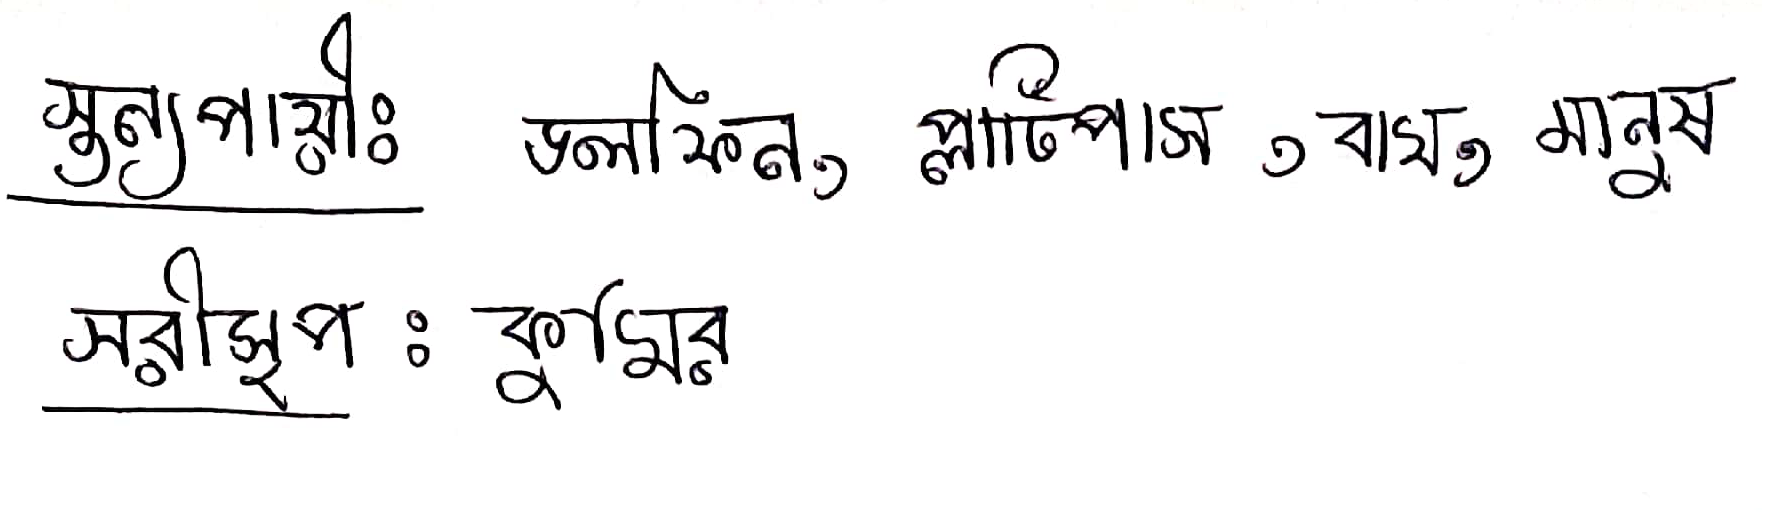 স্তন্যপায়ীঃ ডলফিন, প্লাটিপাস, বাঘ, মানুষ
সরীসৃপ : কুমির